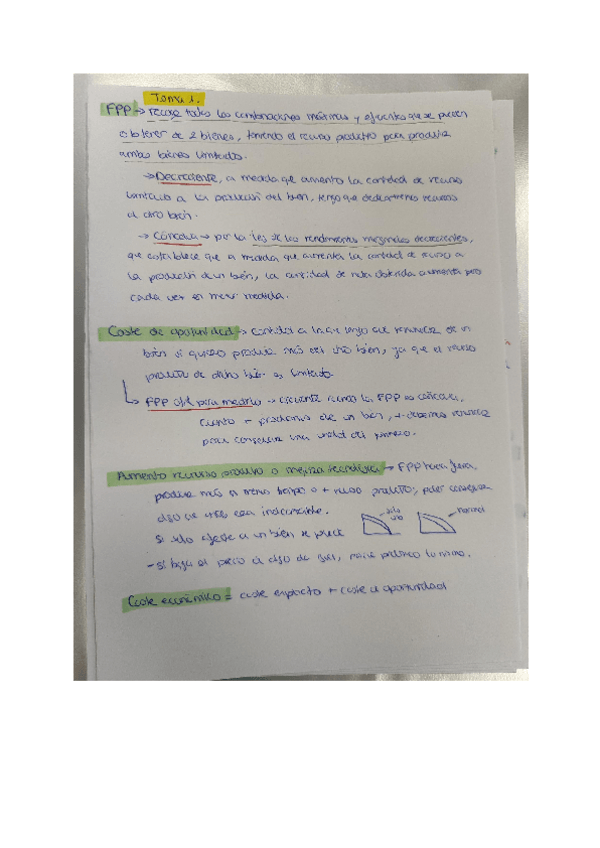 Tema 1.
FPP → recoge todas las combinaciones máximas y eficientes que se pueden
obtener de 2 bienes, teniendo el recurso productivo para producir
ambos bienes limitados.
→ Decreciente, a medida que aumento la cantidad de recurso
limitado a la producción del bien, tengo que recursos
al otro bien.
→ Cóncava → por la ley de los rendimientos marginales decrecientes,
que establece que a medida que aumenta la cantidad de recurso a
la producción de un bien, la cantidad de obtenida aumenta pero
cada vez en menor medida.
Coste de oportunidad → cantidad a la que tengo que renunciar de un
bien si quiero producir más del otro bien, ya que el recurso
productivo de dicho bien es limitado.
FPP útil para medirlo → creciente cuando la FPP es cóncava,
cuanto + producimos de un bien, + debemos renunciar
para conseguir una unidad del primero.
Aumento recurso productivo o mejora tecnológica → FPP hacia fuera,
produce más en menos tiempo o + recurso productivo; poder conseguir
algo que antes era inalcanzable.
solo uno
normal
Si solo afecta a un bien se
- si baja el precio de algo da igual, puedo producir lo mismo.
Coste económico = coste explícito + coste de oportunidad